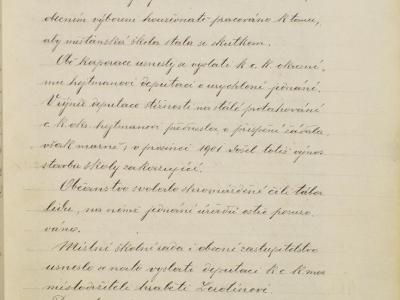 obecním výborem houževnatě pracováno k tomu,
aby měšťanská škola stala se skutkem.
Obě korporace usnesly se vyslati k c. k. okresní-
mu hejtmanovi deputaci o urychlené jednání.
Vyjma deputace stížnosti na stálé protahování
c. k. okr. hejtmanovi přednesla, o přispění žádala,
však marně, v prosinci 1901 došel totiž výnos
stavbu školy zakazující.
Občanstvo svolalo shromáždění čili tábor
lidu, na němž jednání úřadů ostře posuzo-
váno.
Místní školní rada i obecní zastupitelstvo
usneslo se na to vyslati deputaci k c. k. mar.
místodržiteli hraběti